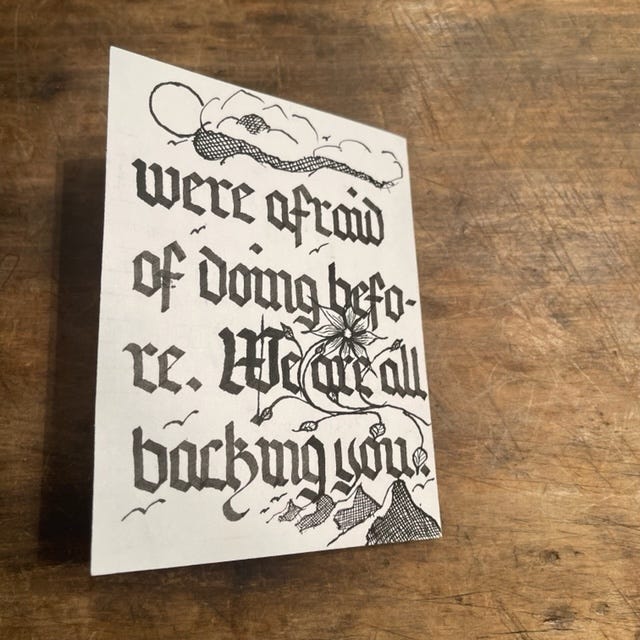 were afraid
of doing befo-
re. We are all
backing you.